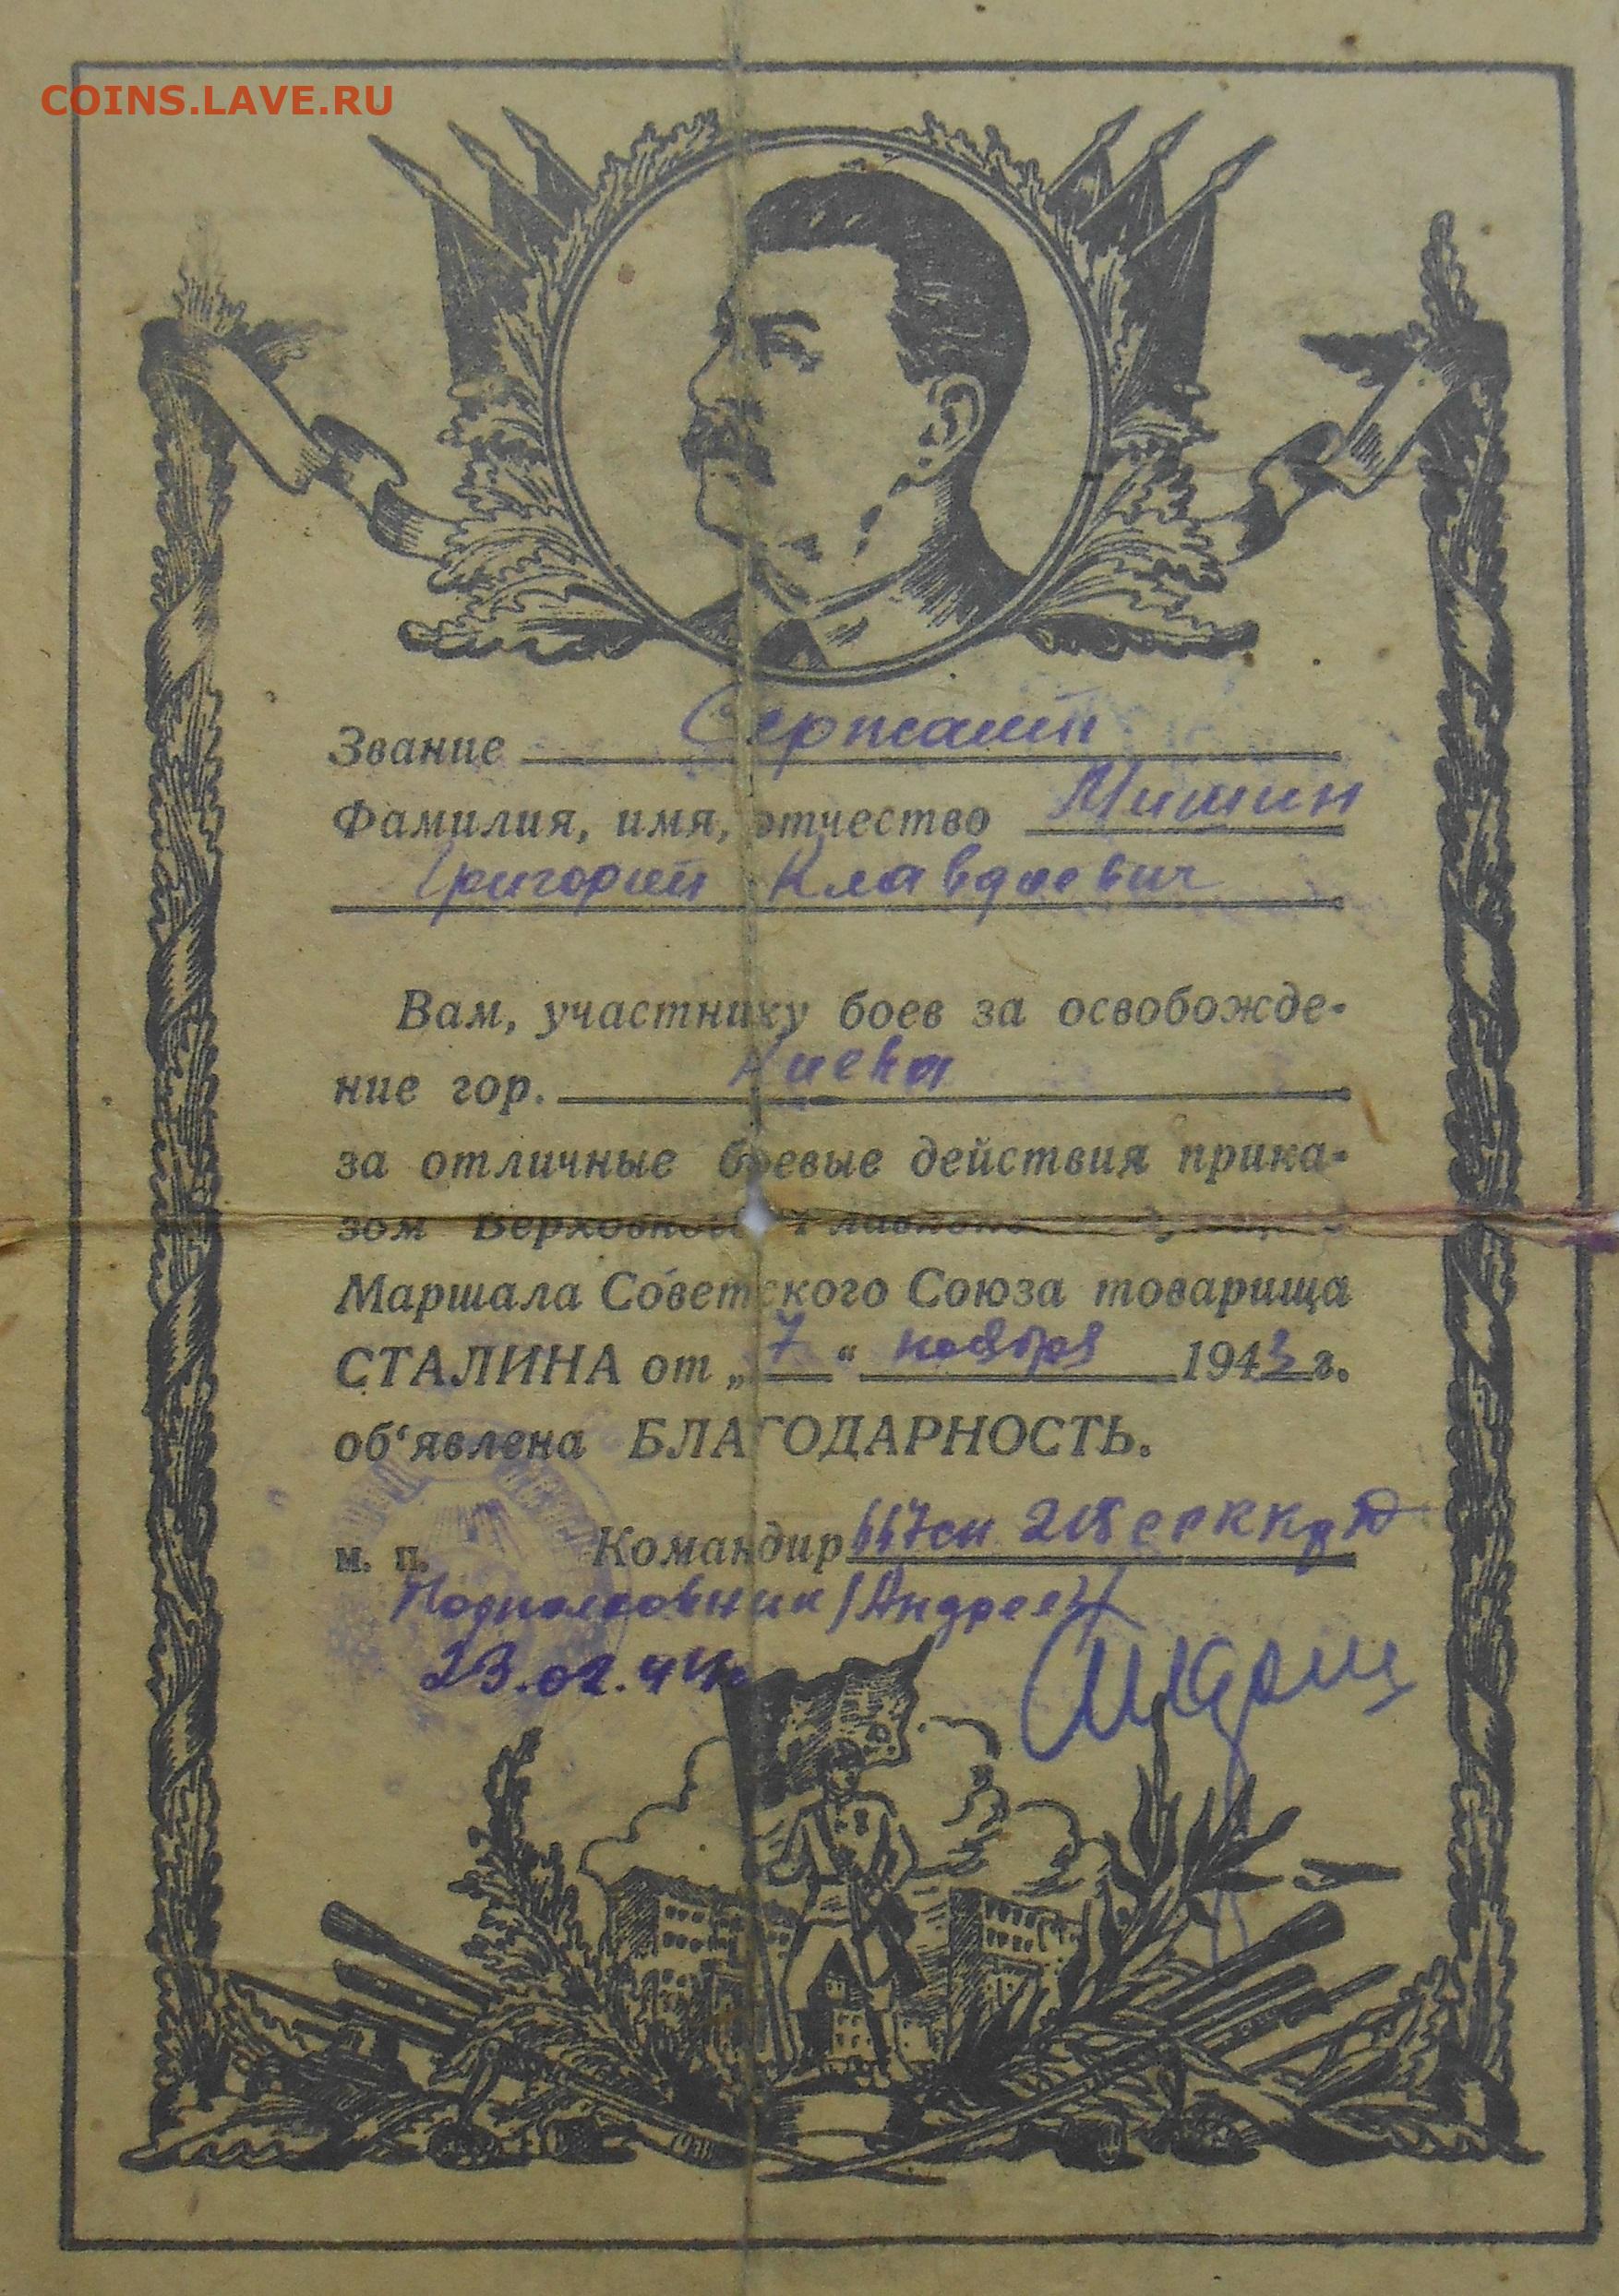 COINS.LAVE.RU
Звание Сержант
Фамилия, имя, отчество Мишин
Григорий Клавдиевич
Вам, участнику боев за освобожде-
ние гор. Киева
за отличные боевые действия прика-
зом Верховного
Маршала Советского Союза товарища
СТАЛИНА от „7“ ноября 1943 г.
об‘явлена БЛАГОДАРНОСТЬ.
м. п. Командир
Подполковник /Андреец/
23.02.44г